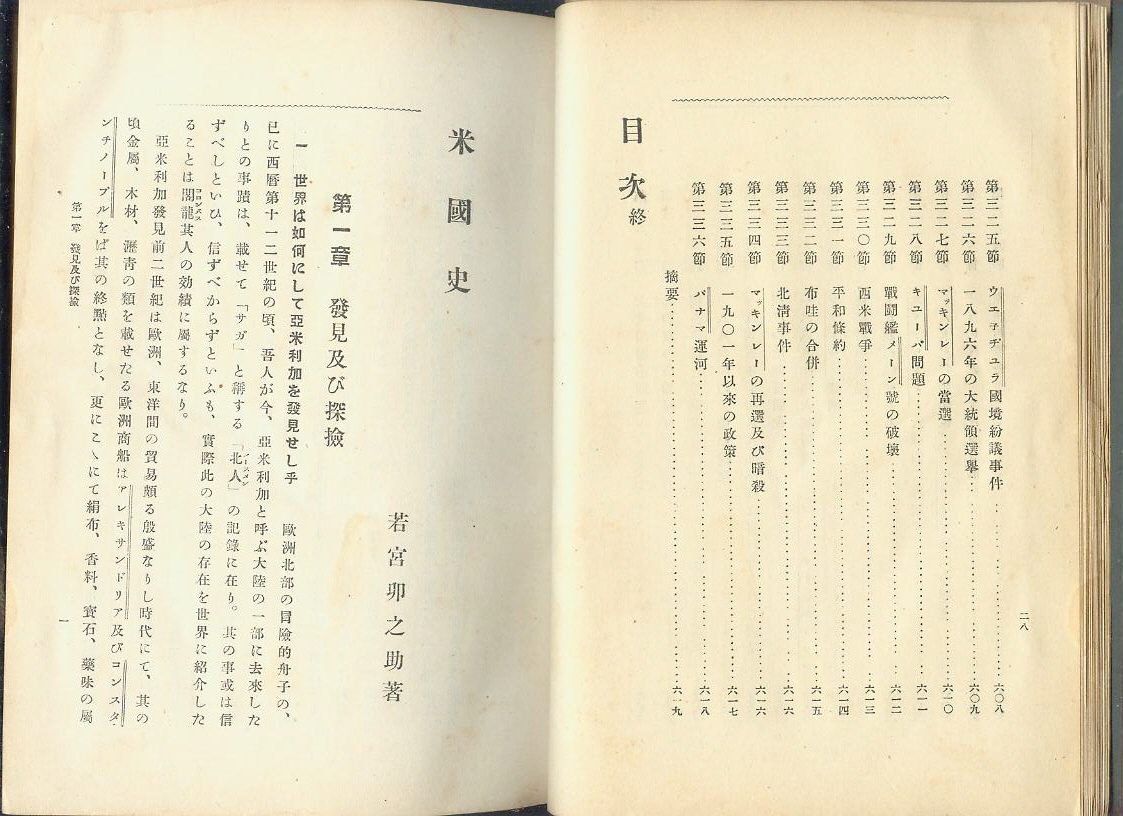 二八
第三二五節 ウエ子ヂユラ國境紛議事件 六〇八
第三二六節 一八九六年の大統領選擧 六〇九
第三二七節 マッキンレーの當選 六一〇
第三二八節 キユーバ問題 六一一
第三二九節 戰鬪艦メーン號の破壞 六一二
第三三〇節 西米戰爭 六一三
第三三一節 平和條約 六一四
第三三二節 布哇の合併 六一五
第三三三節 北清事件 六一六
第三三四節 マッキンレーの再選及び暗殺 六一六
第三三五節 一九〇一年以來の政策 六一七
第三三六節 パナマ運河 六一八
摘要 六一九
目次終
米國史
若宮卯之助著
第一章 發見及び探險
一 世界は如何にして亞米利加を發見せし乎 歐洲北部の冐險的舟子の、
已に西曆第十一二世紀の頃、吾人が今、亞米利加と呼ぶ大陸の一部に去來した
りとの事蹟は、載せて「サガ」と稱する「北人」の記錄に在り。其の事或は信
ずべしといひ、信ずべからずといふも、實際此の大陸の存在を世界に紹介した
ることは閣龍其人の効績に屬するなり。
コロンブス
亞米利加發見前二世紀は歐洲、東洋間の貿易頗る殷盛なりし時代にて、其の
頃金屬、木材、瀝靑の類を載せたる歐洲商船はアレキサンドリア及びコンスタ
ンチノープルをば其の終點となし、更にこゝにて絹布、香料、寳石、藥味の屬
第一章 發見及び探險
一